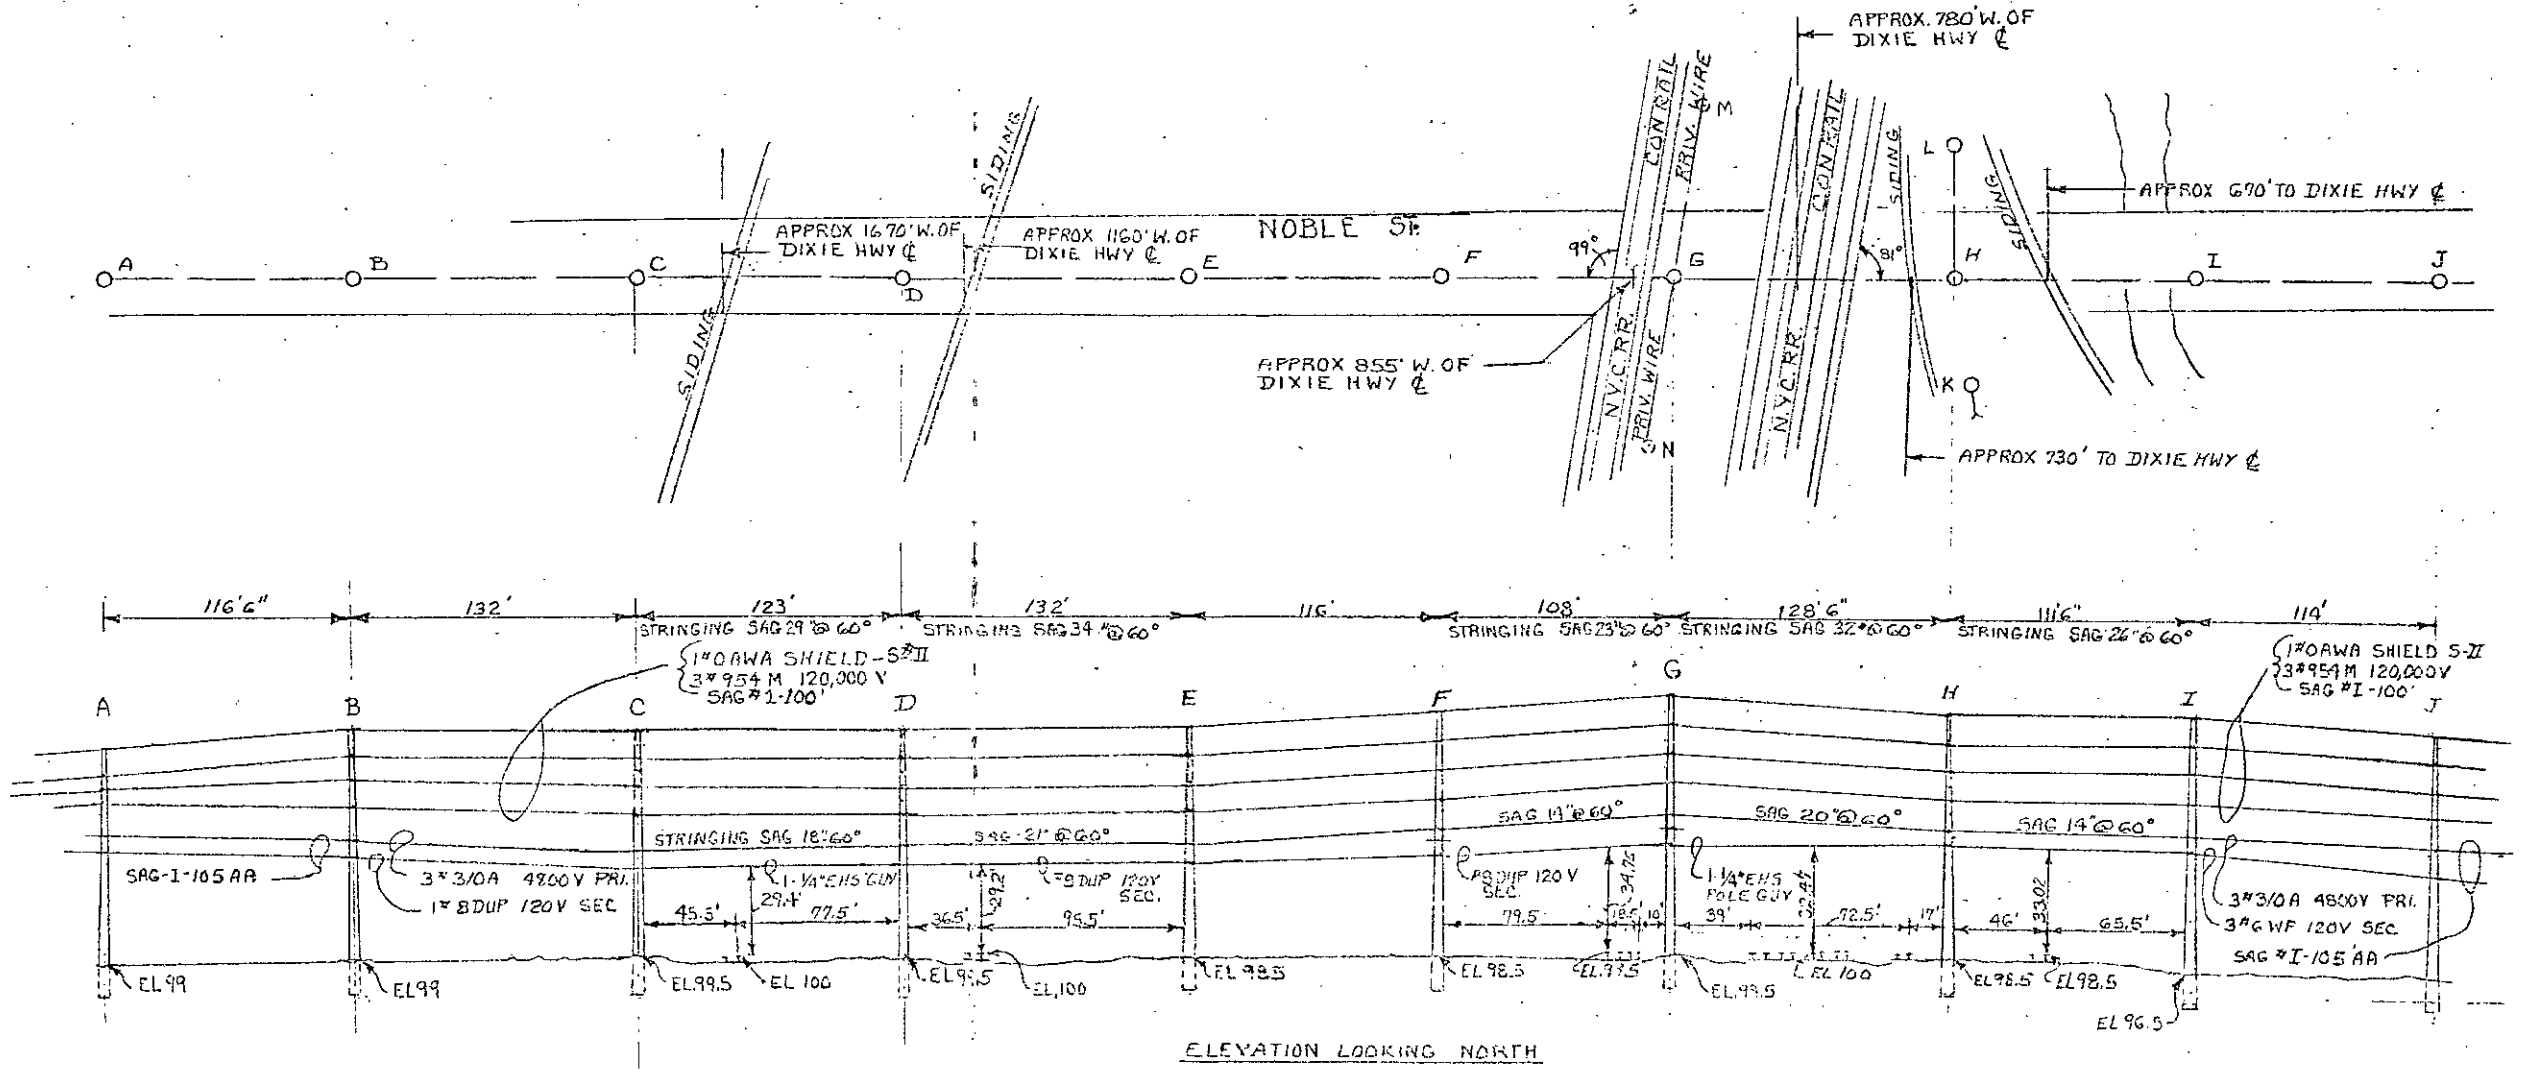 APPROX. 780' W. OF
DIXIE HWY ℄
CONRAIL
PRIV. WIRE
M
CONRAIL
SIDING
L
SIDING
APPROX 670' TO DIXIE HWY ℄
SIDING
NOBLE ST.
APPROX 1670' W. OF
DIXIE HWY ℄
APPROX 1160' W. OF
DIXIE HWY ℄
99°
81°
A
B
C
D
E
F
G
H
I
J
SIDING
N.Y.C. RR.
PRIV. WIRE
N.Y.C. RR.
K
N
APPROX 855' W. OF
DIXIE HWY ℄
APPROX 730' TO DIXIE HWY ℄
116'6"
132'
123'
132'
116'
108'
128'6"
111'6"
114'
STRINGING SAG 29" @ 60°
STRINGING SAG 34" @ 60°
STRINGING SAG 23" @ 60°
STRINGING SAG 32" @ 60°
STRINGING SAG 26" @ 60°
1#0AWA SHIELD-S#II
3#954M 120,000 V
SAG #1-100'
1#0AWA SHIELD S-II
3#954M 120,000V
SAG #I-100'
A
B
C
D
E
F
G
H
I
J
STRINGING SAG 18" 60°
SAG-21" @ 60°
SAG 14" @ 60°
SAG 20" @ 60°
SAG 14" @ 60°
SAG-I-105 AA
3#3/0A 4800V PRI.
1#8DUP 120V SEC
1-1/4" EHS GUY
29.4'
29.2'
#8DUP 120V
SEC.
#8DUP 120V
SEC.
34.75
1-1/4" EHS
POLE GUY
33.02
3#3/0A 4800V PRI.
3#6 WF 120V SEC
SAG #I-105'AA
45.5'
77.5'
36.5'
95.5'
79.5'
18.5'
10'
39'
72.5'
17'
46'
65.5'
EL 99
EL 99
EL 99.5
EL 100
EL 100
EL 98.5
EL 98.5
EL 100
EL 98.5
EL 98.5
EL 96.5
ELEVATION LOOKING NORTH